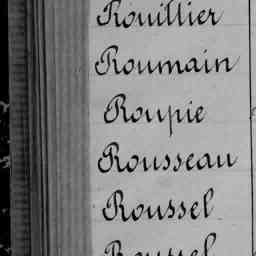 Rouillier
Roumain
Roupie
Rousseau
Roussel
Roussel